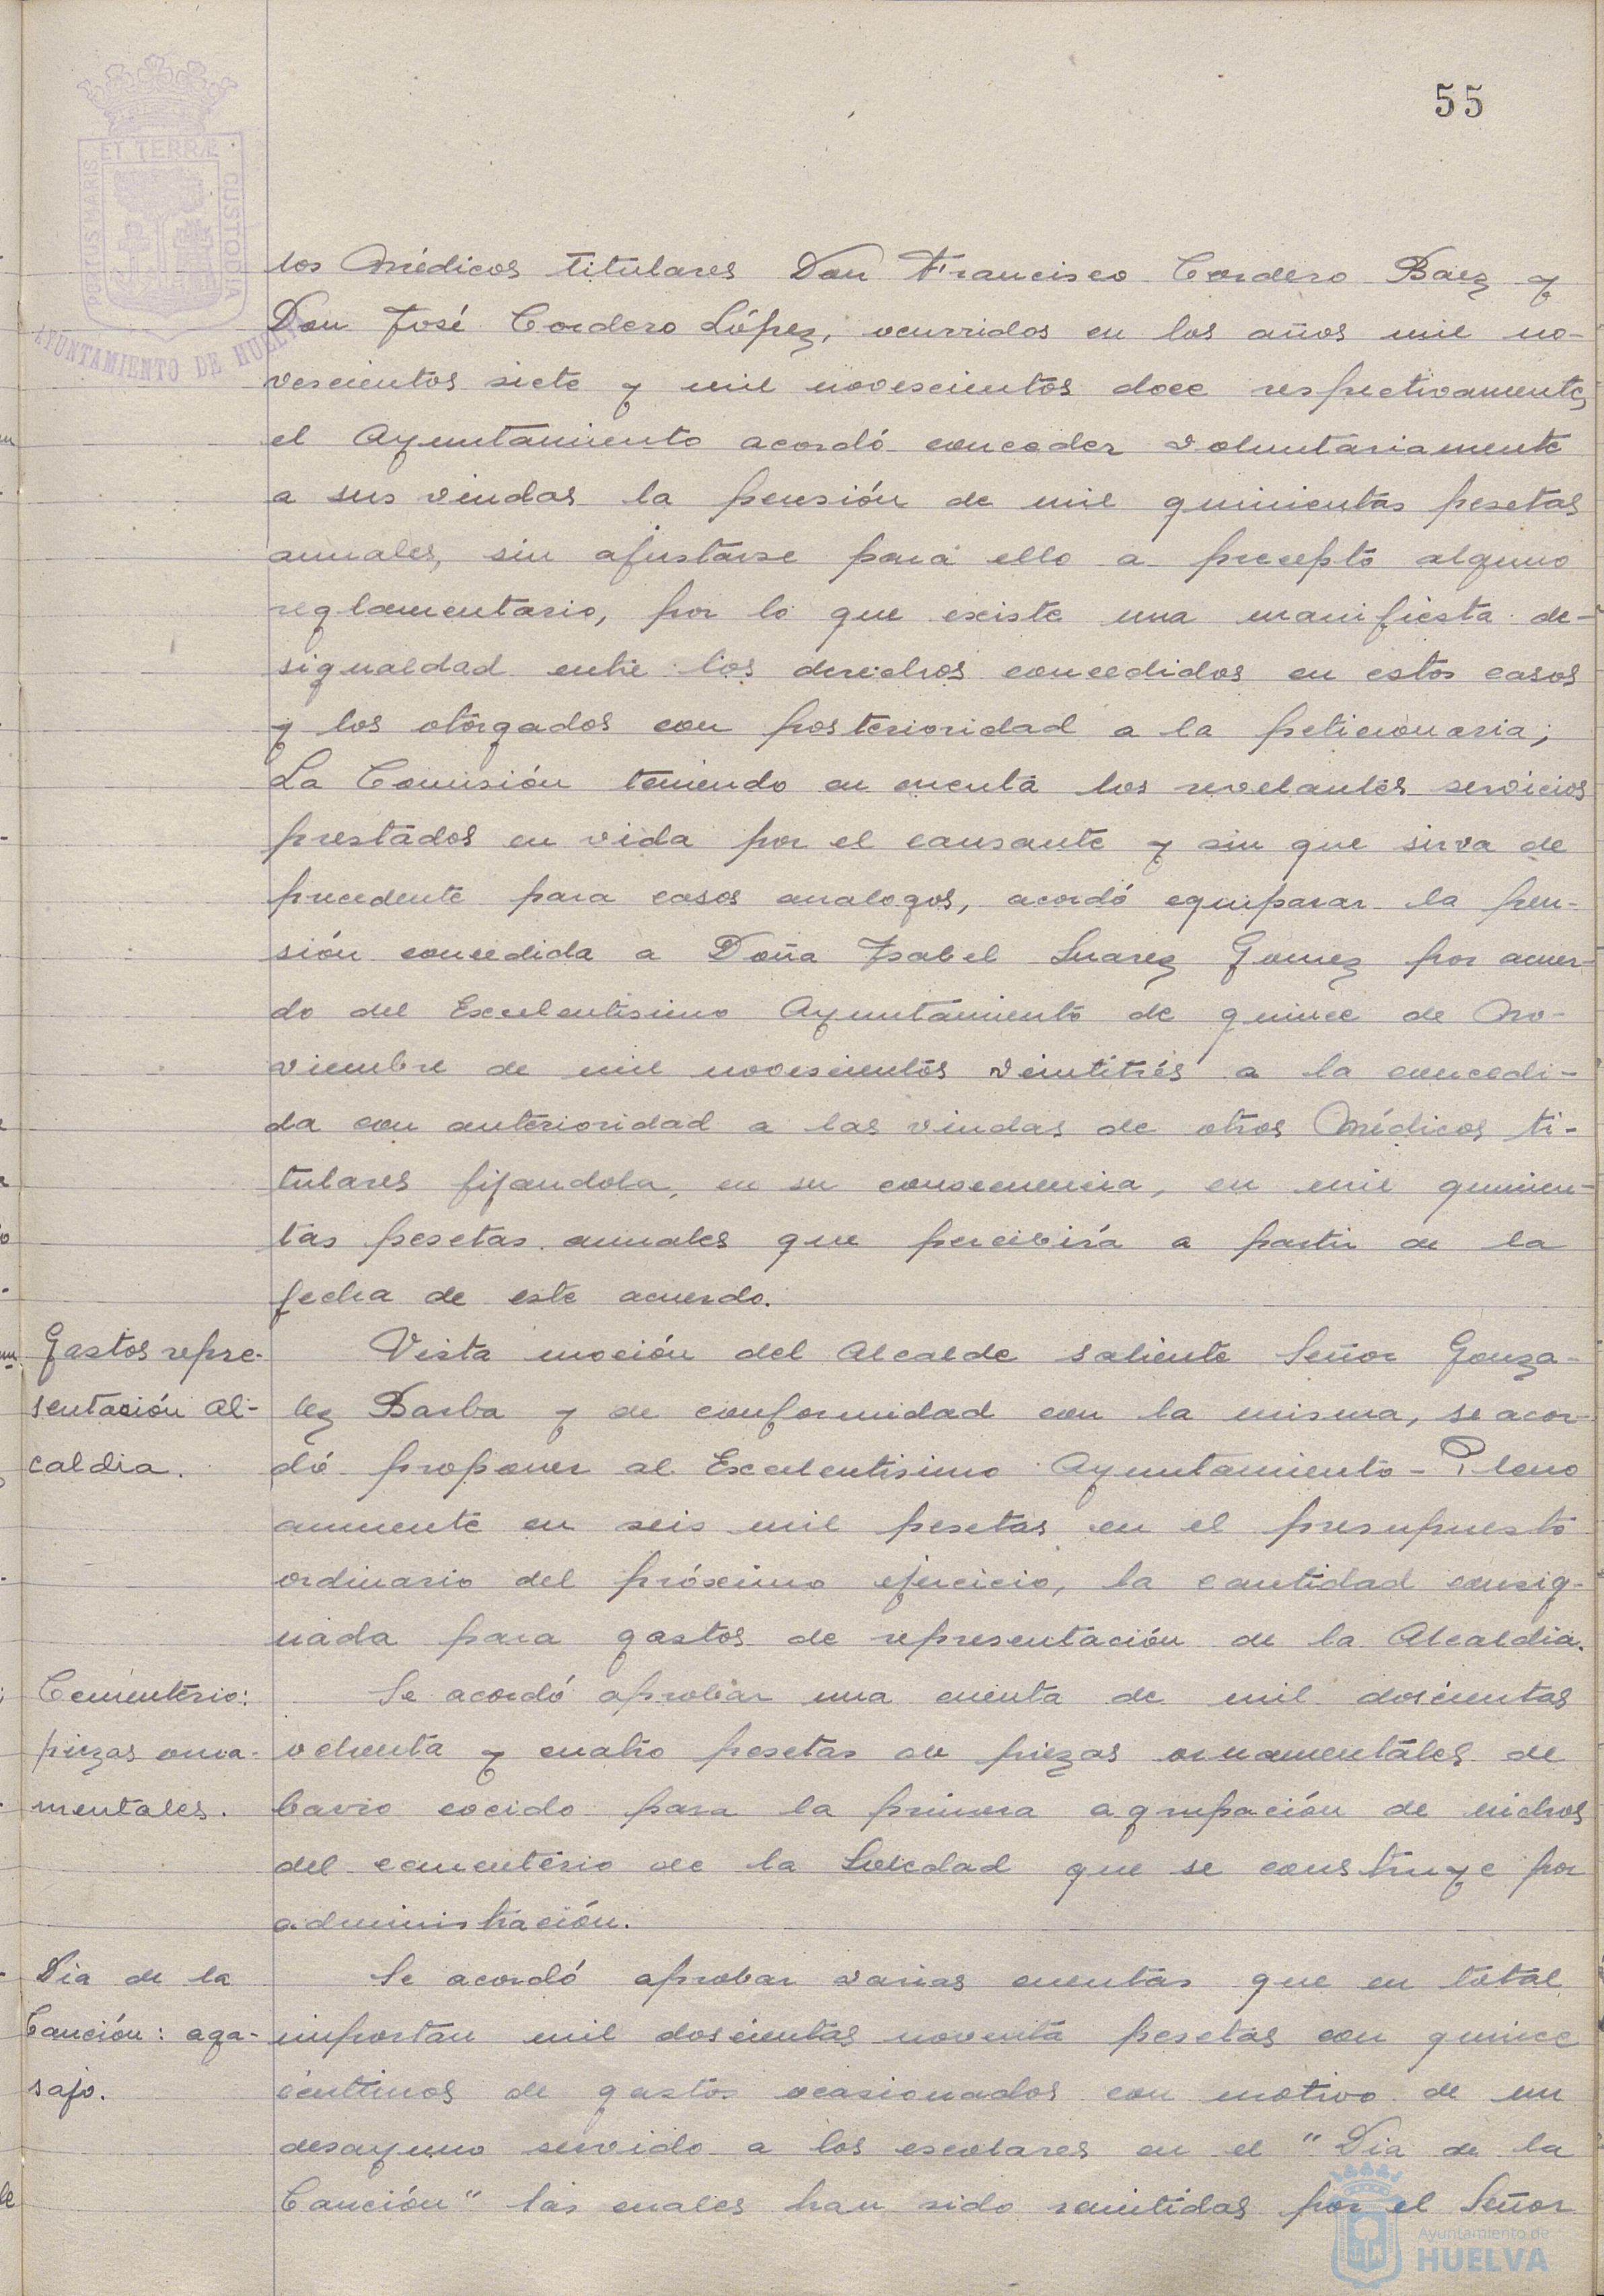 55
PORTUS MARIS
ET TERRÆ
CUSTODIA
AYUNTAMIENTO DE HUELVA
los Médicos titulares Don Francisco Cordero Baez y
Don José Cordero López, ocurridos en los años mil no-
vescientos siete y mil novescientos doce respectivamente,
el Ayuntamiento acordó conceder voluntariamente
a sus viudas la pensión de mil quinientas pesetas
anuales, sin ajustarse para ello a precepto alguno
reglamentario, por lo que existe una manifiesta de-
sigualdad entre los derechos concedidos en estos casos
y los otorgados con posterioridad a la peticionaria;
La Comisión teniendo en cuenta los revelantes servicios
prestados en vida por el causante y sin que sirva de
precedente para casos analogos, acordó equiparar la pen-
sión concedida a Doña Isabel Suarez Gomez por acuer-
do del Excelentisimo Ayuntamiento de quince de No-
viembre de mil novescientos veintitrés a la concedi-
da con anterioridad a las viudas de otros Médicos ti-
tulares fijandola, en su consecuencia, en mil quinien-
tas pesetas anuales que percibirá a partir de la
fecha de este acuerdo.
Gastos repre-
sentación Al-
caldia.
Vista moción del Alcalde saliente Señor Gonza-
lez Barba y de conformidad con la misma, se acor-
dó proponer al Excelentisimo Ayuntamiento-Pleno
aumente en seis mil pesetas en el presupuesto
ordinario del próximo ejercicio, la cantidad consig-
nada para gastos de representación de la Alcaldia.
Cementerio:
piezas orna-
mentales.
Se acordó aprobar una cuenta de mil doscientas
ochenta y cuatro pesetas de piezas ornamentales de
barro cocido para la primera agrupación de nichos
del cementerio de la Soledad que se construye por
administración.
Dia de la
Canción: aga-
sajo.
Se acordó aprobar varias cuentas que en total
importan mil doscientas noventa pesetas con quince
centimos de gastos ocasionados con motivo de un
desayuno servido a los escolares en el "Dia de la
Canción" las cuales han sido remitidas por el Señor
Ayuntamiento de
HUELVA